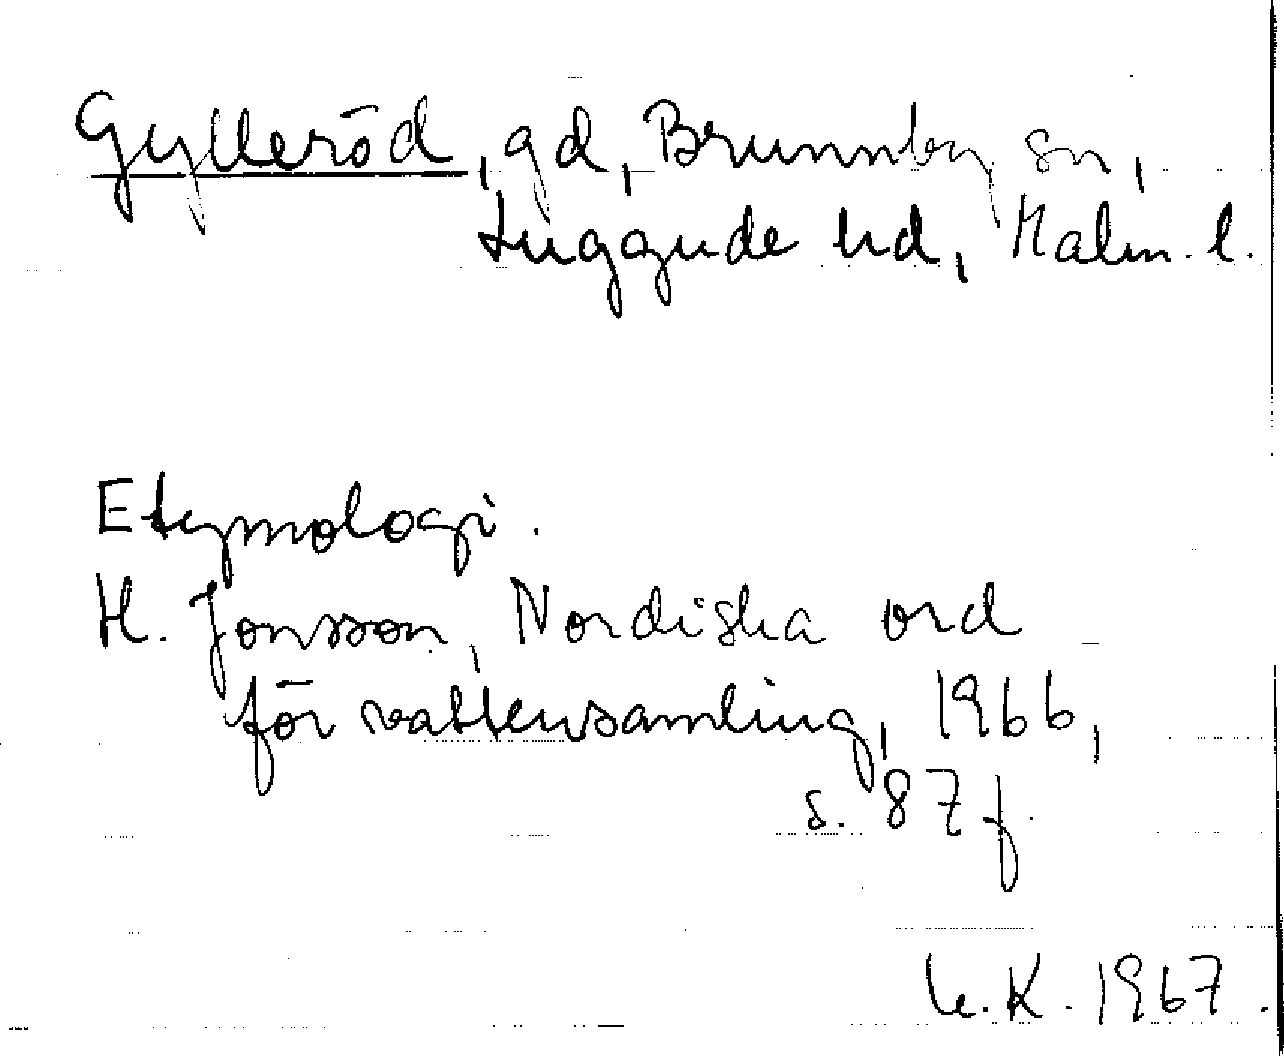 Gylleröd, gd, Brunnby sn,
Luggude hd, Malm. l.
Etymologi.
H. Jonsson, Nordiska ord
för vattensamling, 1966,
s. 87 f.
U.K. 1967.